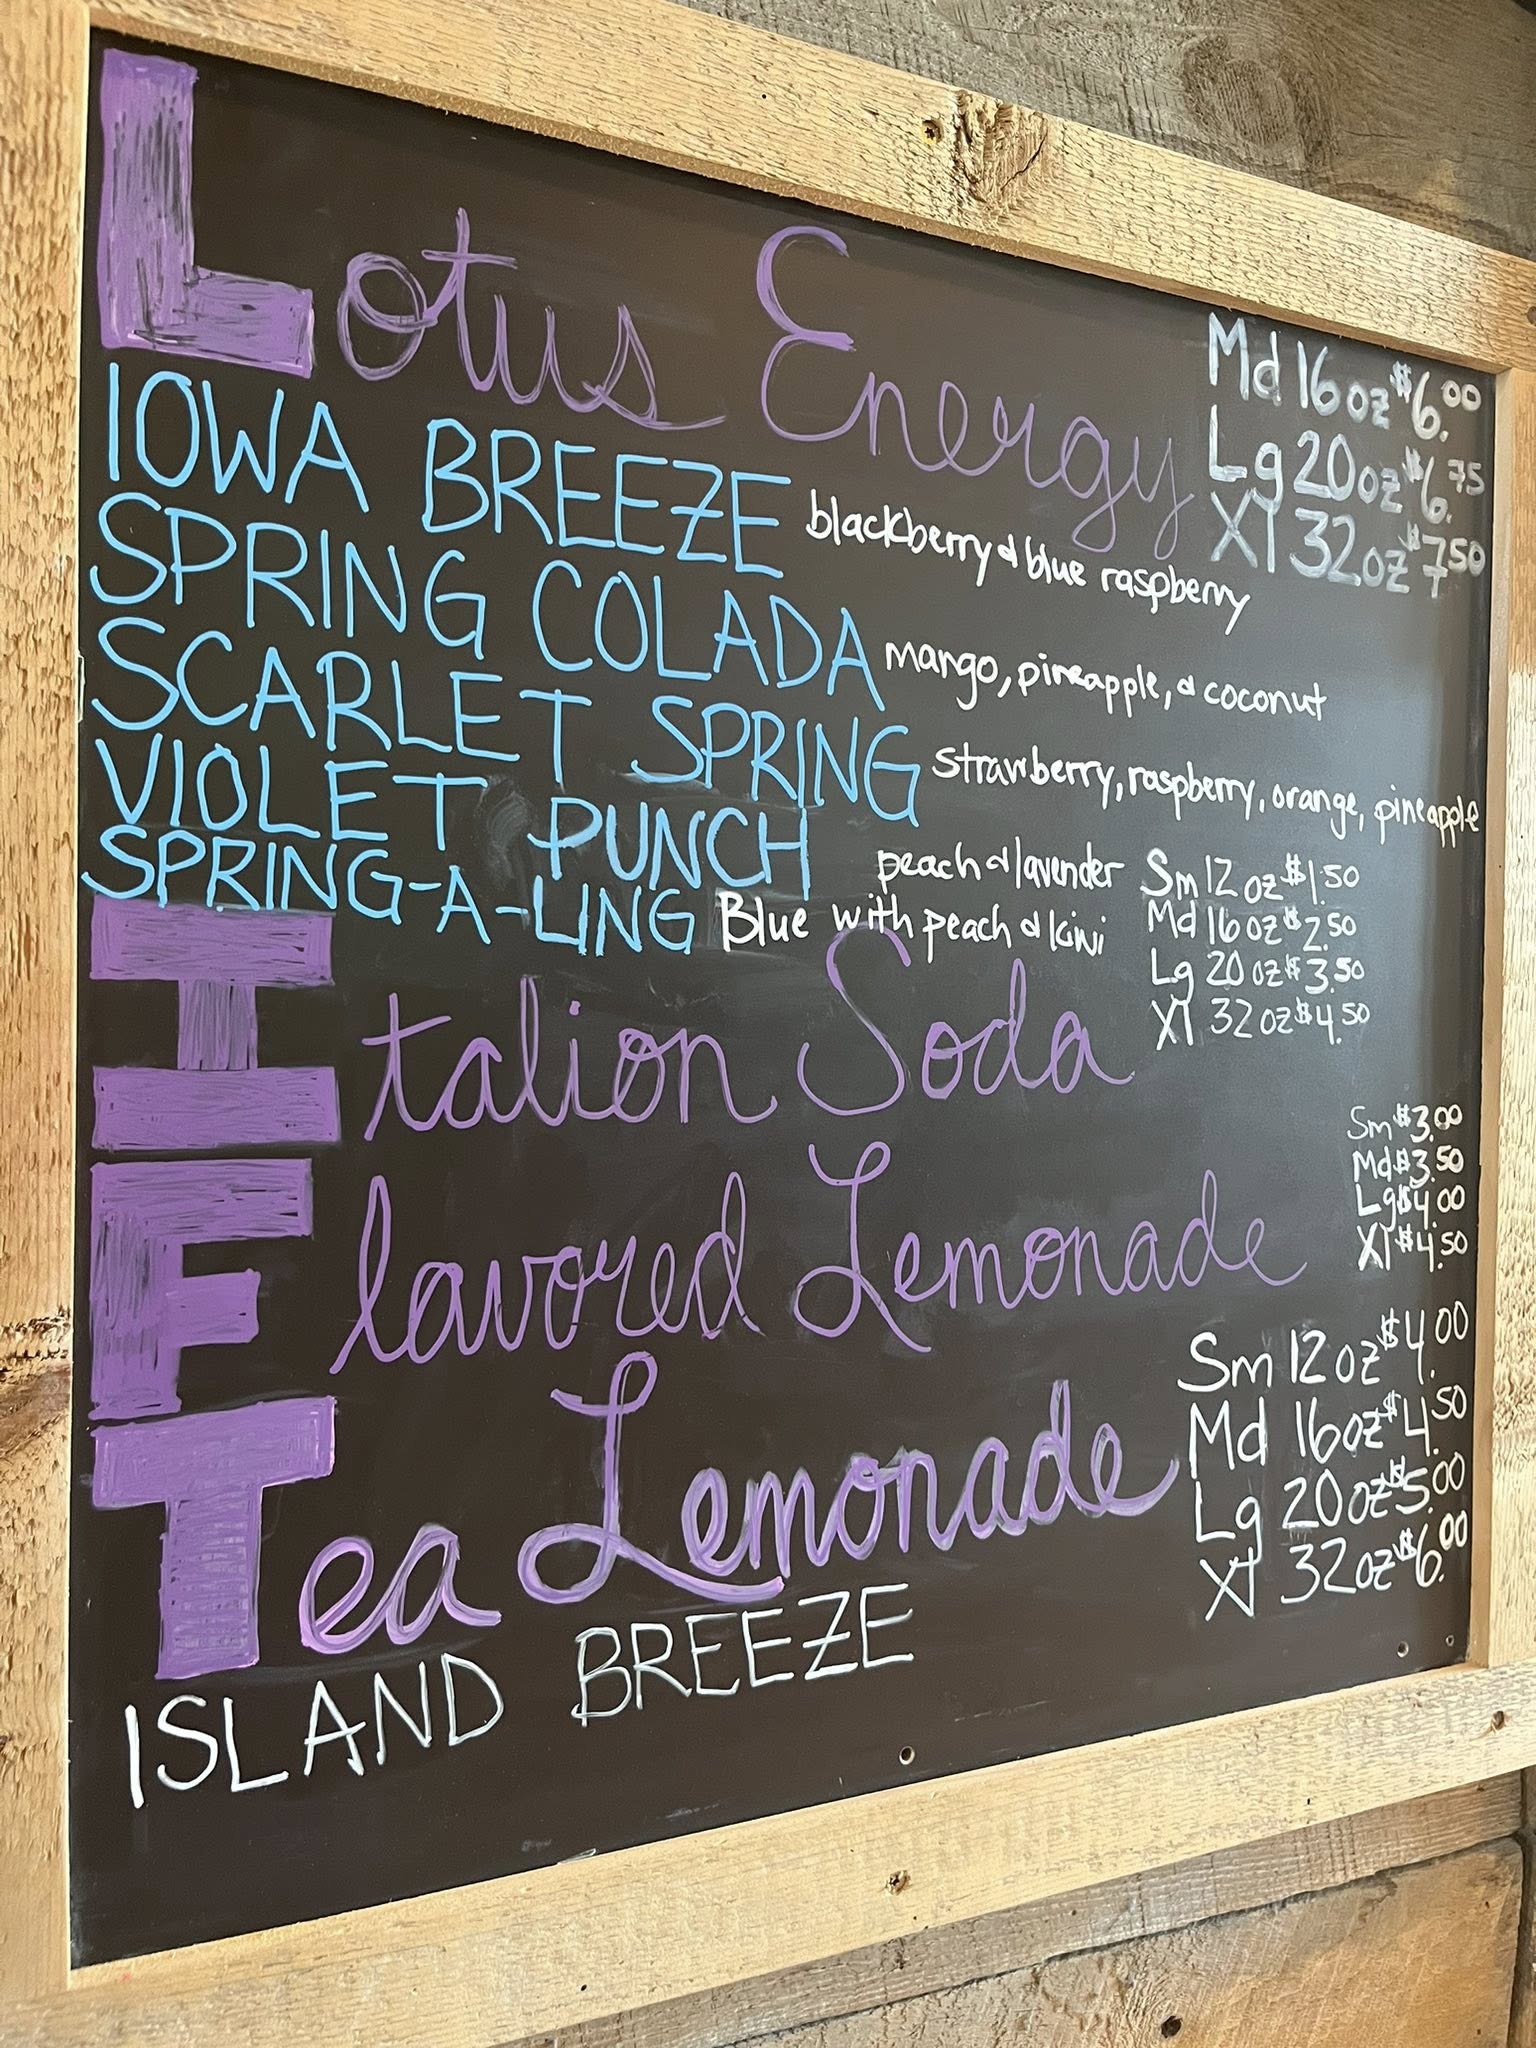 Lotus Energy
Md 16oz $6.00
Lg 20oz $6.75
Xl 32oz $7.50
IOWA BREEZE blackberry & blue raspberry
SPRING COLADA mango, pineapple, & coconut
SCARLET SPRING strawberry, raspberry, orange, pineapple
VIOLET PUNCH peach & lavender
SPRING-A-LING Blue with peach & kiwi
Italion Soda
Sm 12oz $1.50
Md 16oz $2.50
Lg 20oz $3.50
Xl 32oz $4.50
Flavored Lemonade
Sm $3.00
Md $3.50
Lg $4.00
Xl $4.50
Tea Lemonade
Sm 12oz $4.00
Md 16oz $4.50
Lg 20oz $5.00
Xl 32oz $6.00
ISLAND BREEZE